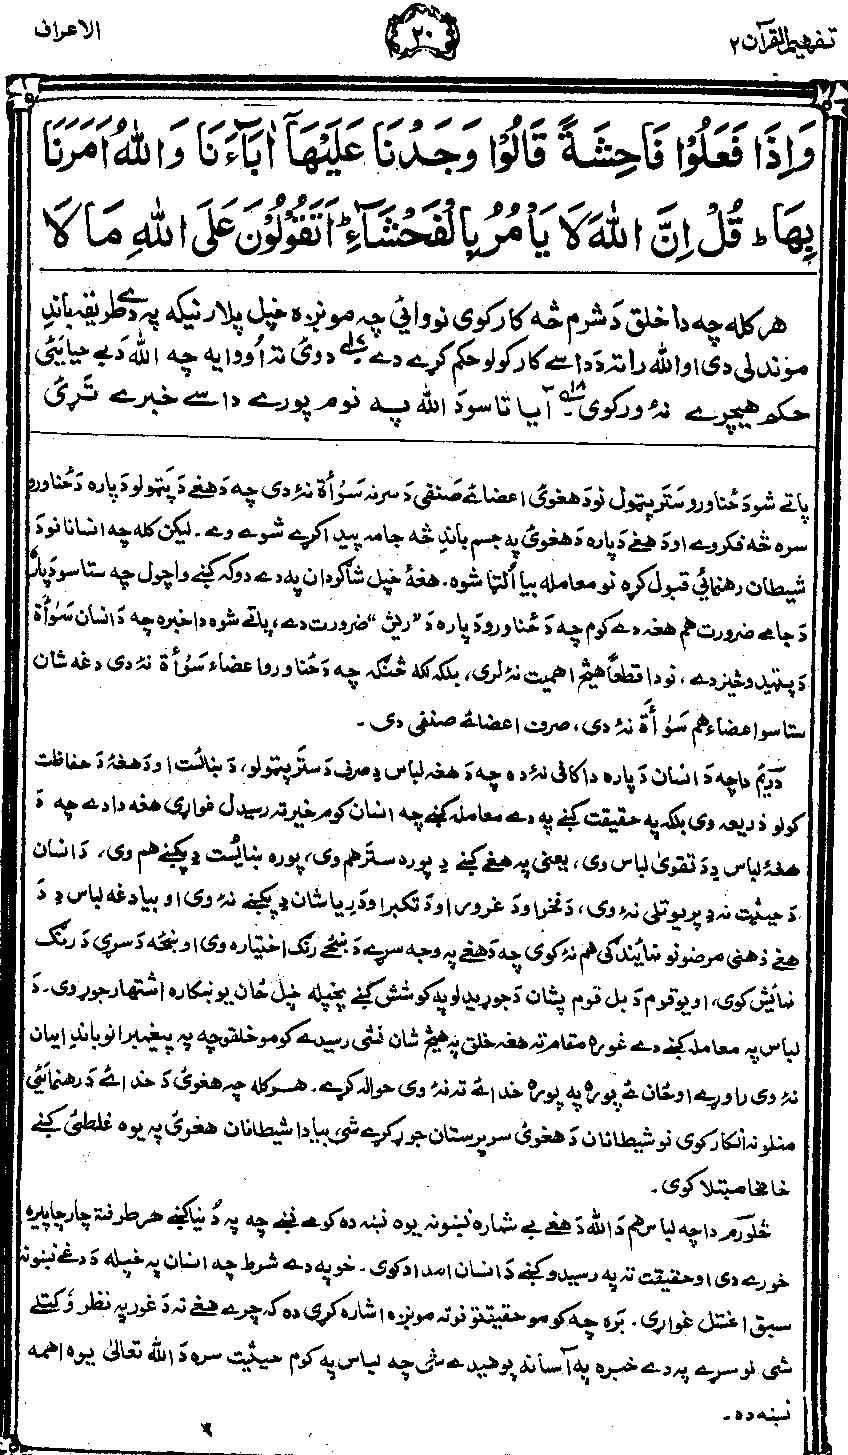 تفهيم القرآن ٢
٢٠
الاعراف
وَاِذَا فَعَلُوْا فَاحِشَةً قَالُوْا وَجَدْنَا عَلَيْهَآ اٰبَآءَنَا وَاللّٰهُ اَمَرَنَا
بِهَا ؕ قُلْ اِنَّ اللّٰهَ لَا يَاْمُرُ بِالْفَحْشَآءِ ؕ اَتَقُوْلُوْنَ عَلَى اللّٰهِ مَا لَا
هر كله چه دا خلق دَ شرم څه كار كوى نو وائي چه مونږه خپل پلار نيكه په دے طريقه باندِ
موندلى دى او الله راته دَ داسے كار كولو حكم كړے دے ١٧ دوئ ته اُووايه چه الله دَ بے حيايئ
حكم هيچرے نهٔ وركوى ١٨ آيا تاسو دَ الله په نوم پورے داسے خبرے تړئ
پاتے شو دَ ځناورو ستر پټول نو دَ هغوئ اعضائے صنفى دَ سر نه سَوْأة نهٔ دى چه دَ هغے دَ پټولو دَ پاره دَ ځناورو
سره څه فكر وے او دَ هغے دَ پاره دَ هغوئ په جسم باندِ څه جامه پيدا كړے شوے وے. ليكن كله چه انسانانو دَ
شيطان رهنمائي قبول كړه نو معامله بيا اُلټا شوه. هغهٔ خپل شاگردان په دے دوكه كښے واچول چه ستاسو دَ پاره
دَ جامے ضرورت هم هغه دے كوم چه دَ ځناورو دَ پاره دَ "ريش" ضرورت دے، پاتے شوه دا خبره چه دَ انسان سَوْأة
دَ پټيدو څيز دے، نو دا قطعاً هيڅ اهميت نهٔ لرى، بلكه لكه څنګه چه دَ ځناورو اعضاء سَوْأة نهٔ دى دغه شان
ستاسو اعضاء هم سَوْأة نهٔ دى، صرف اعضائے صنفى دى.
دريم دا چه دَ انسان دَ پاره دا كافى نهٔ ده چه دَ هغه لباس دِ صرف دَ ستر پټولو، دَ ښائست او دَ هغهٔ دَ حفاظت
كولو ذريعه وى بلكه په حقيقت كښے په دے معامله كښے چه انسان كوم خير ته رسيدل غواړى هغه دا دے چه دَ
هغهٔ لباس دِ دَ تقوىٰ لباس وى، يعنى په هغے كښے دِ پوره ستر هم وى، پوره ښائست دِ پكښے هم وى، دَ انسان
دَ حيثيت نه دِ پريوتلى نهٔ وى، دَ نخرا او دَ غرور، او دَ تكبر او دَ ريا شان دِ پكښے نهٔ وى او بيا دغه لباس دِ دَ
هغے ذهنى مرضونو نمائندګى هم نهٔ كوى چه دَ هغے په وجه سړے دَ ښځے رنګ اختياره وى او ښځه دَ سړى دَ رنګ
نمائش كوى، او يو قوم دَ بل قوم پشان دَ جوړيدلو په كوشش كښے پخپله خپل ځان يو ښكاره اشتهار جوړ وى. دَ
لباس په معامله كښے دے غوره مقام ته هغه خلق په هيڅ شان نشى رسيدے كومو خلقو چه په پيغمبرانو باندِ ايمان
نهٔ وى راوړے او ځان ئے پوره په پوره خدائے ته نهٔ وى حواله كړے. هر كله چه هغوئ دَ خدائے دَ رهنمايئ
منلو نه انكار كوى نو شيطانان دَ هغوئ سرپرستان جوړ كړے شى، بيا دا شيطانان هغوئ په يوه غلطئ كښے
خامخا مبتلا كوى.
څلورم دا چه لباس هم دَ الله دَ هغے بے شماره نښونه يوه نښه ده كومے نښے چه په دُنيا كښے هر طرفته چار چاپيره
خورے دى او حقيقت ته په رسيدو كښے دَ انسان امداد كوى. خو په دے شرط چه انسان په خپله دَ دغے نښو نه
سبق اغستل غواړى. بَره چه كومو حقيقتونو ته مونږه اشاره كړى ده كه چرے هغے ته دَ غور په نظر وكتلے
شى نو سړے په دے خبره په آسانه پوهيدے شى چه لباس په كوم حيثيت سره دَ الله تعالىٰ يوه اهمه
نښه ده.